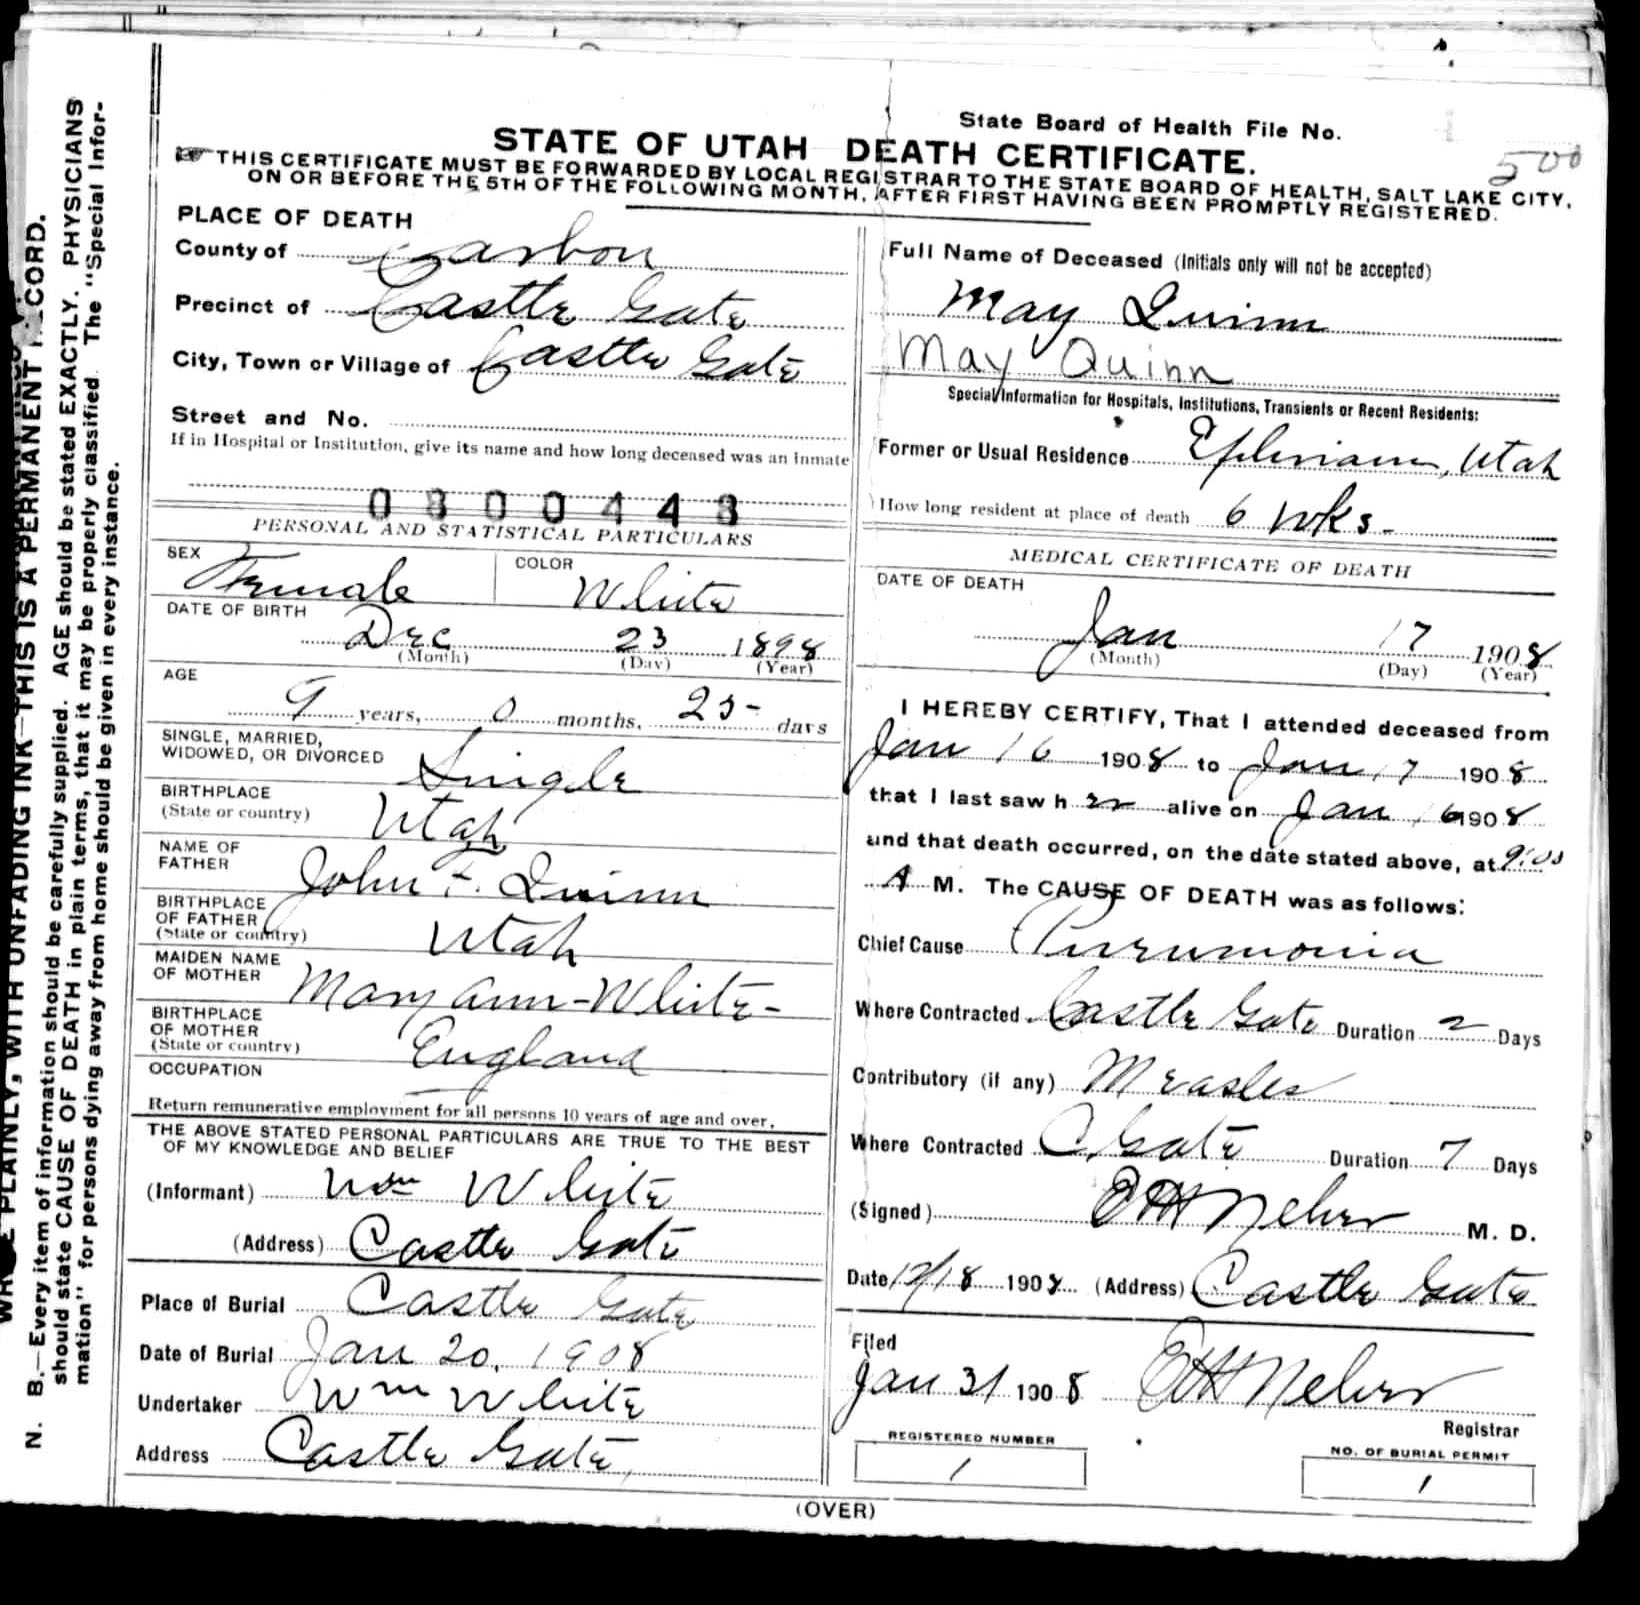 State Board of Health File No.
500
STATE OF UTAH DEATH CERTIFICATE.
THIS CERTIFICATE MUST BE FORWARDED BY LOCAL REGISTRAR TO THE STATE BOARD OF HEALTH, SALT LAKE CITY,
ON OR BEFORE THE 5TH OF THE FOLLOWING MONTH, AFTER FIRST HAVING BEEN PROMPTLY REGISTERED.
PLACE OF DEATH
County of Carbon
Precinct of Castle Gate
City, Town or Village of Castle Gate
Street and No.
If in Hospital or Institution, give its name and how long deceased was an inmate
0800443
PERSONAL AND STATISTICAL PARTICULARS
SEX Female COLOR White
DATE OF BIRTH
Dec 23 1898
(Month) (Day) (Year)
AGE
9 years, 0 months, 25 days
SINGLE, MARRIED,
WIDOWED, OR DIVORCED Single
BIRTHPLACE
(State or country) Utah
NAME OF
FATHER John F. Quinn
BIRTHPLACE
OF FATHER
(State or country) Utah
MAIDEN NAME
OF MOTHER Mary Ann-White-
BIRTHPLACE
OF MOTHER
(State or country) England
OCCUPATION
Return remunerative employment for all persons 10 years of age and over.
THE ABOVE STATED PERSONAL PARTICULARS ARE TRUE TO THE BEST
OF MY KNOWLEDGE AND BELIEF
(Informant) Wm White
(Address) Castle Gate
Place of Burial Castle Gate
Date of Burial Jan 20, 1908
Undertaker Wm White
Address Castle Gate,
Full Name of Deceased (Initials only will not be accepted)
May Quinn
May Quinn
Special Information for Hospitals, Institutions, Transients or Recent Residents:
Former or Usual Residence Ephriam, Utah
How long resident at place of death 6 wks-
MEDICAL CERTIFICATE OF DEATH
DATE OF DEATH
Jan 17 1908
(Month) (Day) (Year)
I HEREBY CERTIFY, That I attended deceased from
Jan 16 1908 to Jan 17 1908
that I last saw h er alive on Jan 16 1908
and that death occurred, on the date stated above, at 9:00
A M. The CAUSE OF DEATH was as follows:
Chief Cause Pneumonia
Where Contracted Castle Gate Duration 2 Days
Contributory (if any) Measles
Where Contracted C. Gate Duration 7 Days
(Signed) M. D.
Date 1908 (Address) Castle Gate
Filed
Jan 31 1908
Registrar
REGISTERED NUMBER
1
NO. OF BURIAL PERMIT
1
(OVER)
PLAINLY, WITH UNFADING INK—THIS IS A PERMANENT RECORD.
N. B.—Every item of information should be carefully supplied. AGE should be stated EXACTLY. PHYSICIANS
should state CAUSE OF DEATH in plain terms, that it may be properly classified. The "Special Infor-
mation" for persons dying away from home should be given in every instance.